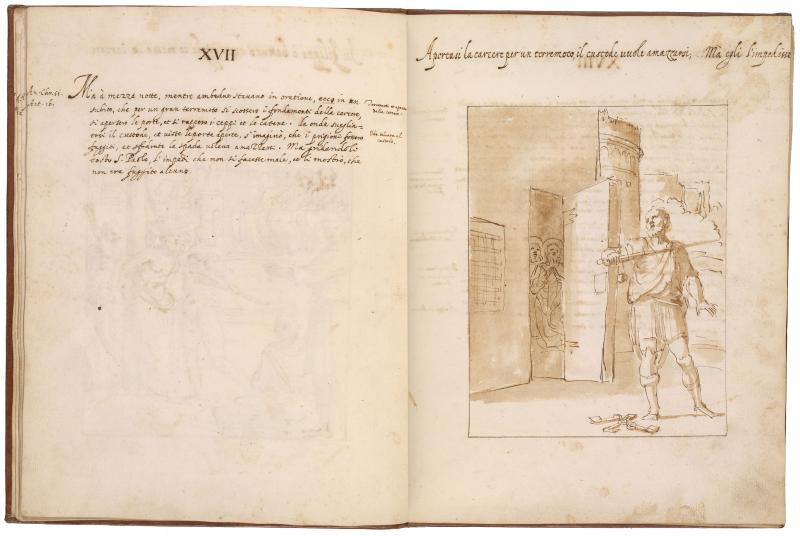 XVII
An. Chr. 51.
Act. 16.
Ma à mezza notte, mentre ambedue stavano in oratione, ecco in un
subito, che per un gran terremoto si scossero i fondamenti della carcere,
si apersero le porte, et si ruppero i ceppi et le catene. La onde sveglia-
tosi il custode, et viste le porte aperte, s'imaginò, che i prigioni fossero
fuggiti, et sfodrata la spada voleva amazzarsi. Ma gridandoli
tosto S. Paolo, l'impedì che non si facesse male, et li mostrò, che
non era fuggito alcuno.
Terremoto et
della carcere.
custode.
Apertasi la carcere per un terremoto, il custode vuole amazzarsi, Ma egli l'impedisce